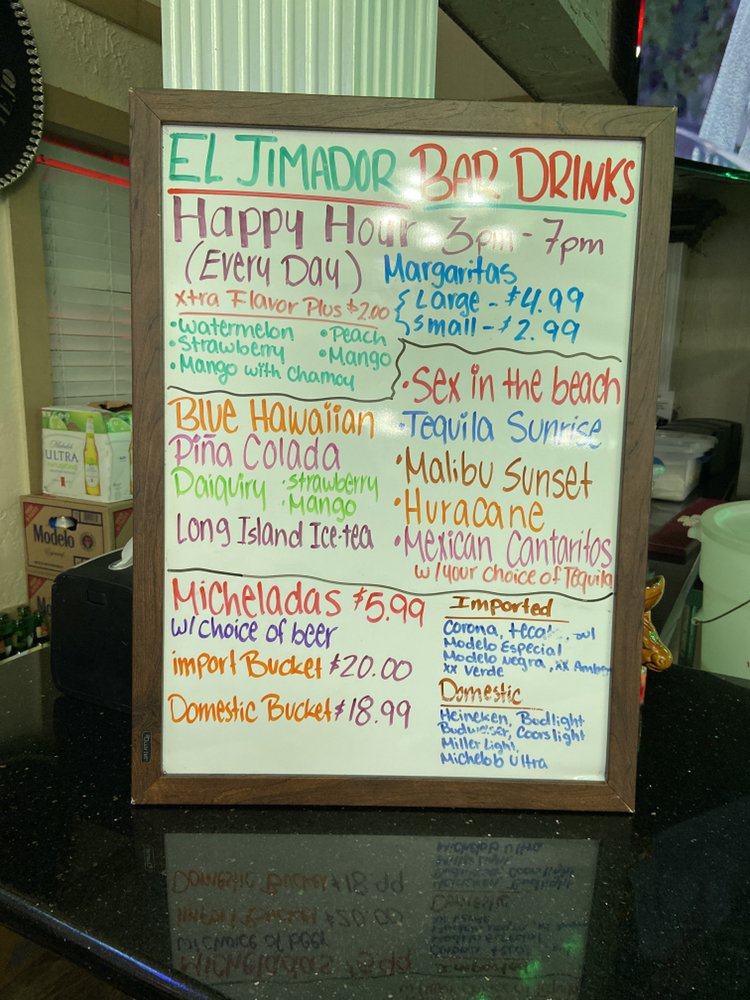 EL JIMADOR BAR DRINKS
Happy Hour 3pm - 7pm
(Every Day)
Margaritas
Large - $4.99
Small - $2.99
xtra Flavor Plus $2.00
•Watermelon •Peach
•Strawberry •Mango
•Mango with Chamoy
Blue Hawaiian
Piña Colada
Daiquiry •Strawberry
•Mango
Long Island Ice-tea
•Sex in the beach
•Tequila Sunrise
•Malibu Sunset
•Huracane
•Mexican Cantaritos
w/your choice of Tequila
Micheladas $5.99
w/choice of beer
import Bucket $20.00
Domestic Bucket $18.99
Imported
Corona, tecate,
Modelo Especial
Modelo negra, XX Amber
XX Verde
Domestic
Heineken, Budlight
Budweiser, Coorslight
Miller Light,
Michelob Ultra
Michelob
ULTRA
Modelo